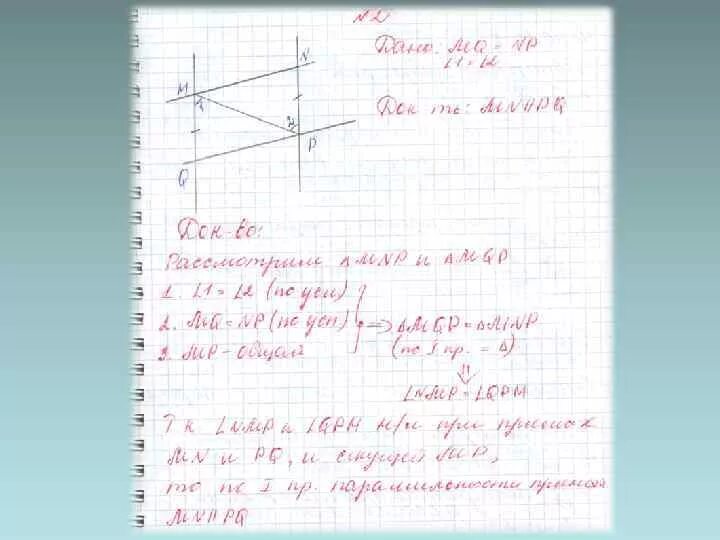 №2
Дано: MQ = NP
∠1 = ∠2
Док-ть: MN ∥ PQ
M
N
1
2
P
Q
Док-во:
Рассмотрим △MNP и △MQP
1. ∠1 = ∠2 (по усл)
2. MQ = NP (по усл) ⇒ △MQP = △MNP
3. MP - общая (по I пр. = △)
⇓
∠NMP = ∠QPM
Т к ∠NMP и ∠QPM н/л при прямых
MN и PQ, и секущей MP,
то по I пр. параллельности прямой
MN ∥ PQ